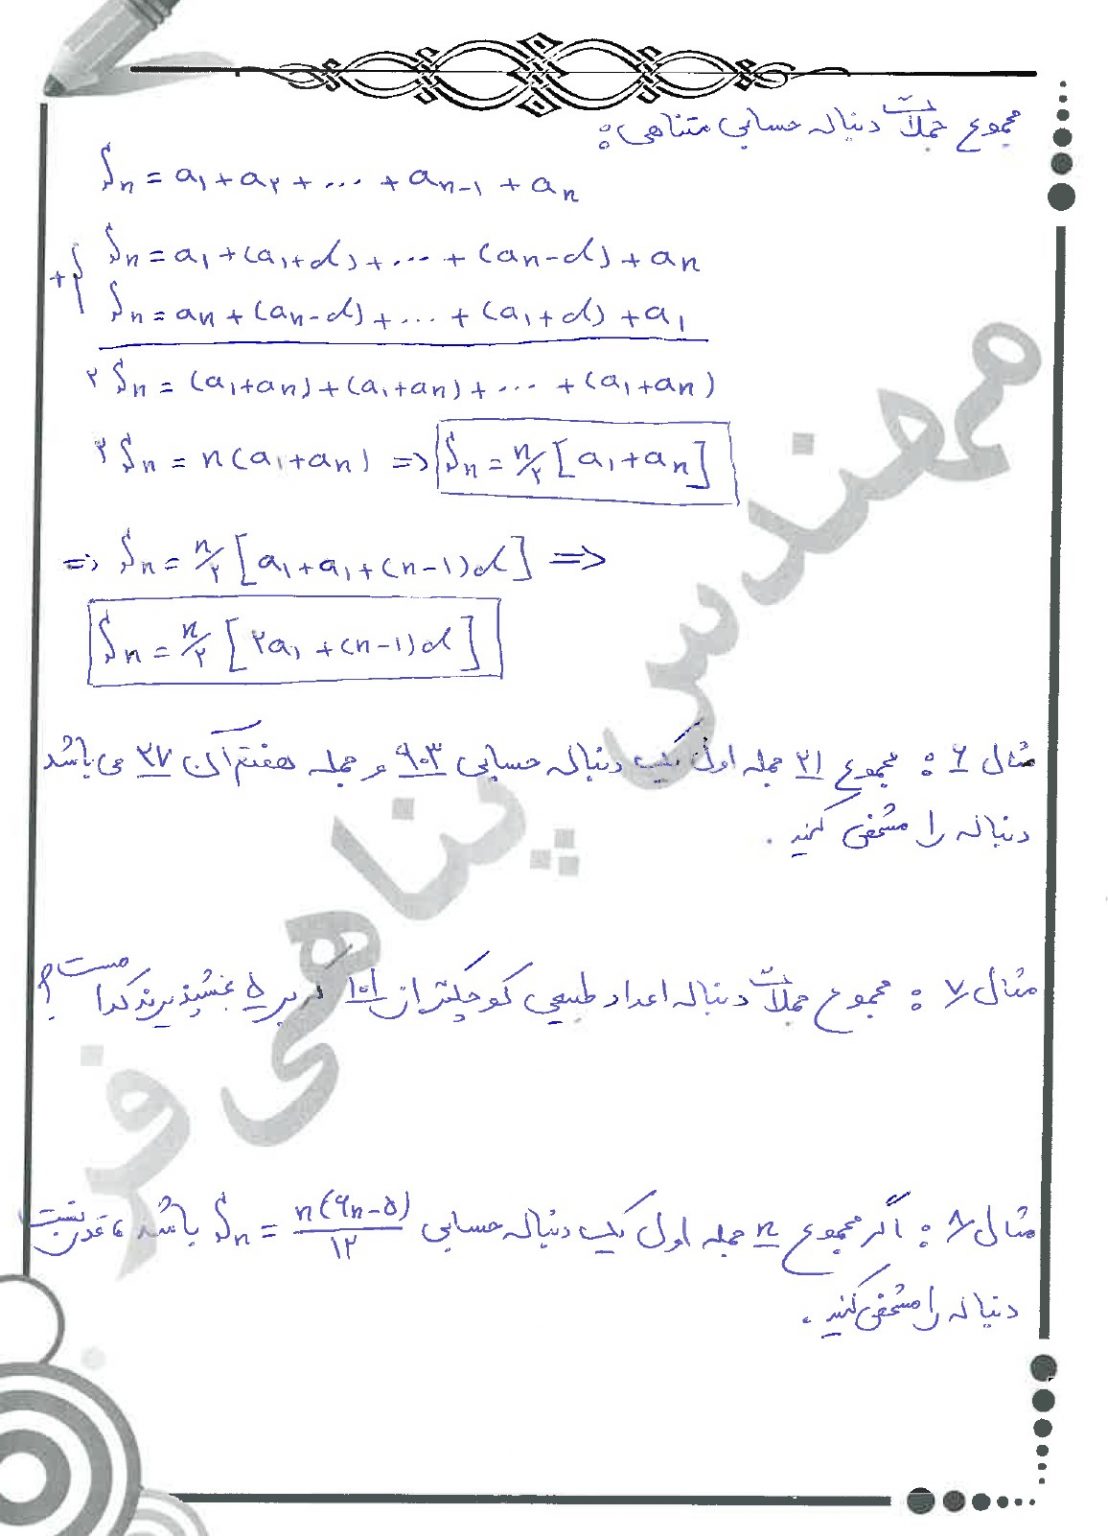 مجموع جملات دنباله حسابی متناهی:
Sn = a۱ + a۲ + ... + an-۱ + an
+{ Sn = a۱ + (a۱+d) + ... + (an-d) + an
Sn = an + (an-d) + ... + (a۱+d) + a۱
۲Sn = (a۱+an) + (a۱+an) + ... + (a۱+an)
۲Sn = n(a۱+an) => Sn = n/۲ [a۱+an]
=> Sn = n/۲ [a۱+a۱+(n-۱)d] =>
Sn = n/۲ [۲a۱ + (n-۱)d]
مثال ۶: مجموع ۲۱ جمله اول یک دنباله حسابی ۹۰۳ و جمله هفتم آن ۲۷ می باشد
دنباله را مشخص کنید.
مثال ۷: مجموع جملات دنباله اعداد طبیعی کوچکتر از ۱۰۱ که بر ۵ بخشپذیرند کدام است؟
مثال ۸: اگر مجموع n جمله اول یک دنباله حسابی Sn = n(۶n-۵)/۱۲ باشد، قدر نسبت
دنباله را مشخص کنید.
مهندس پناهی فر